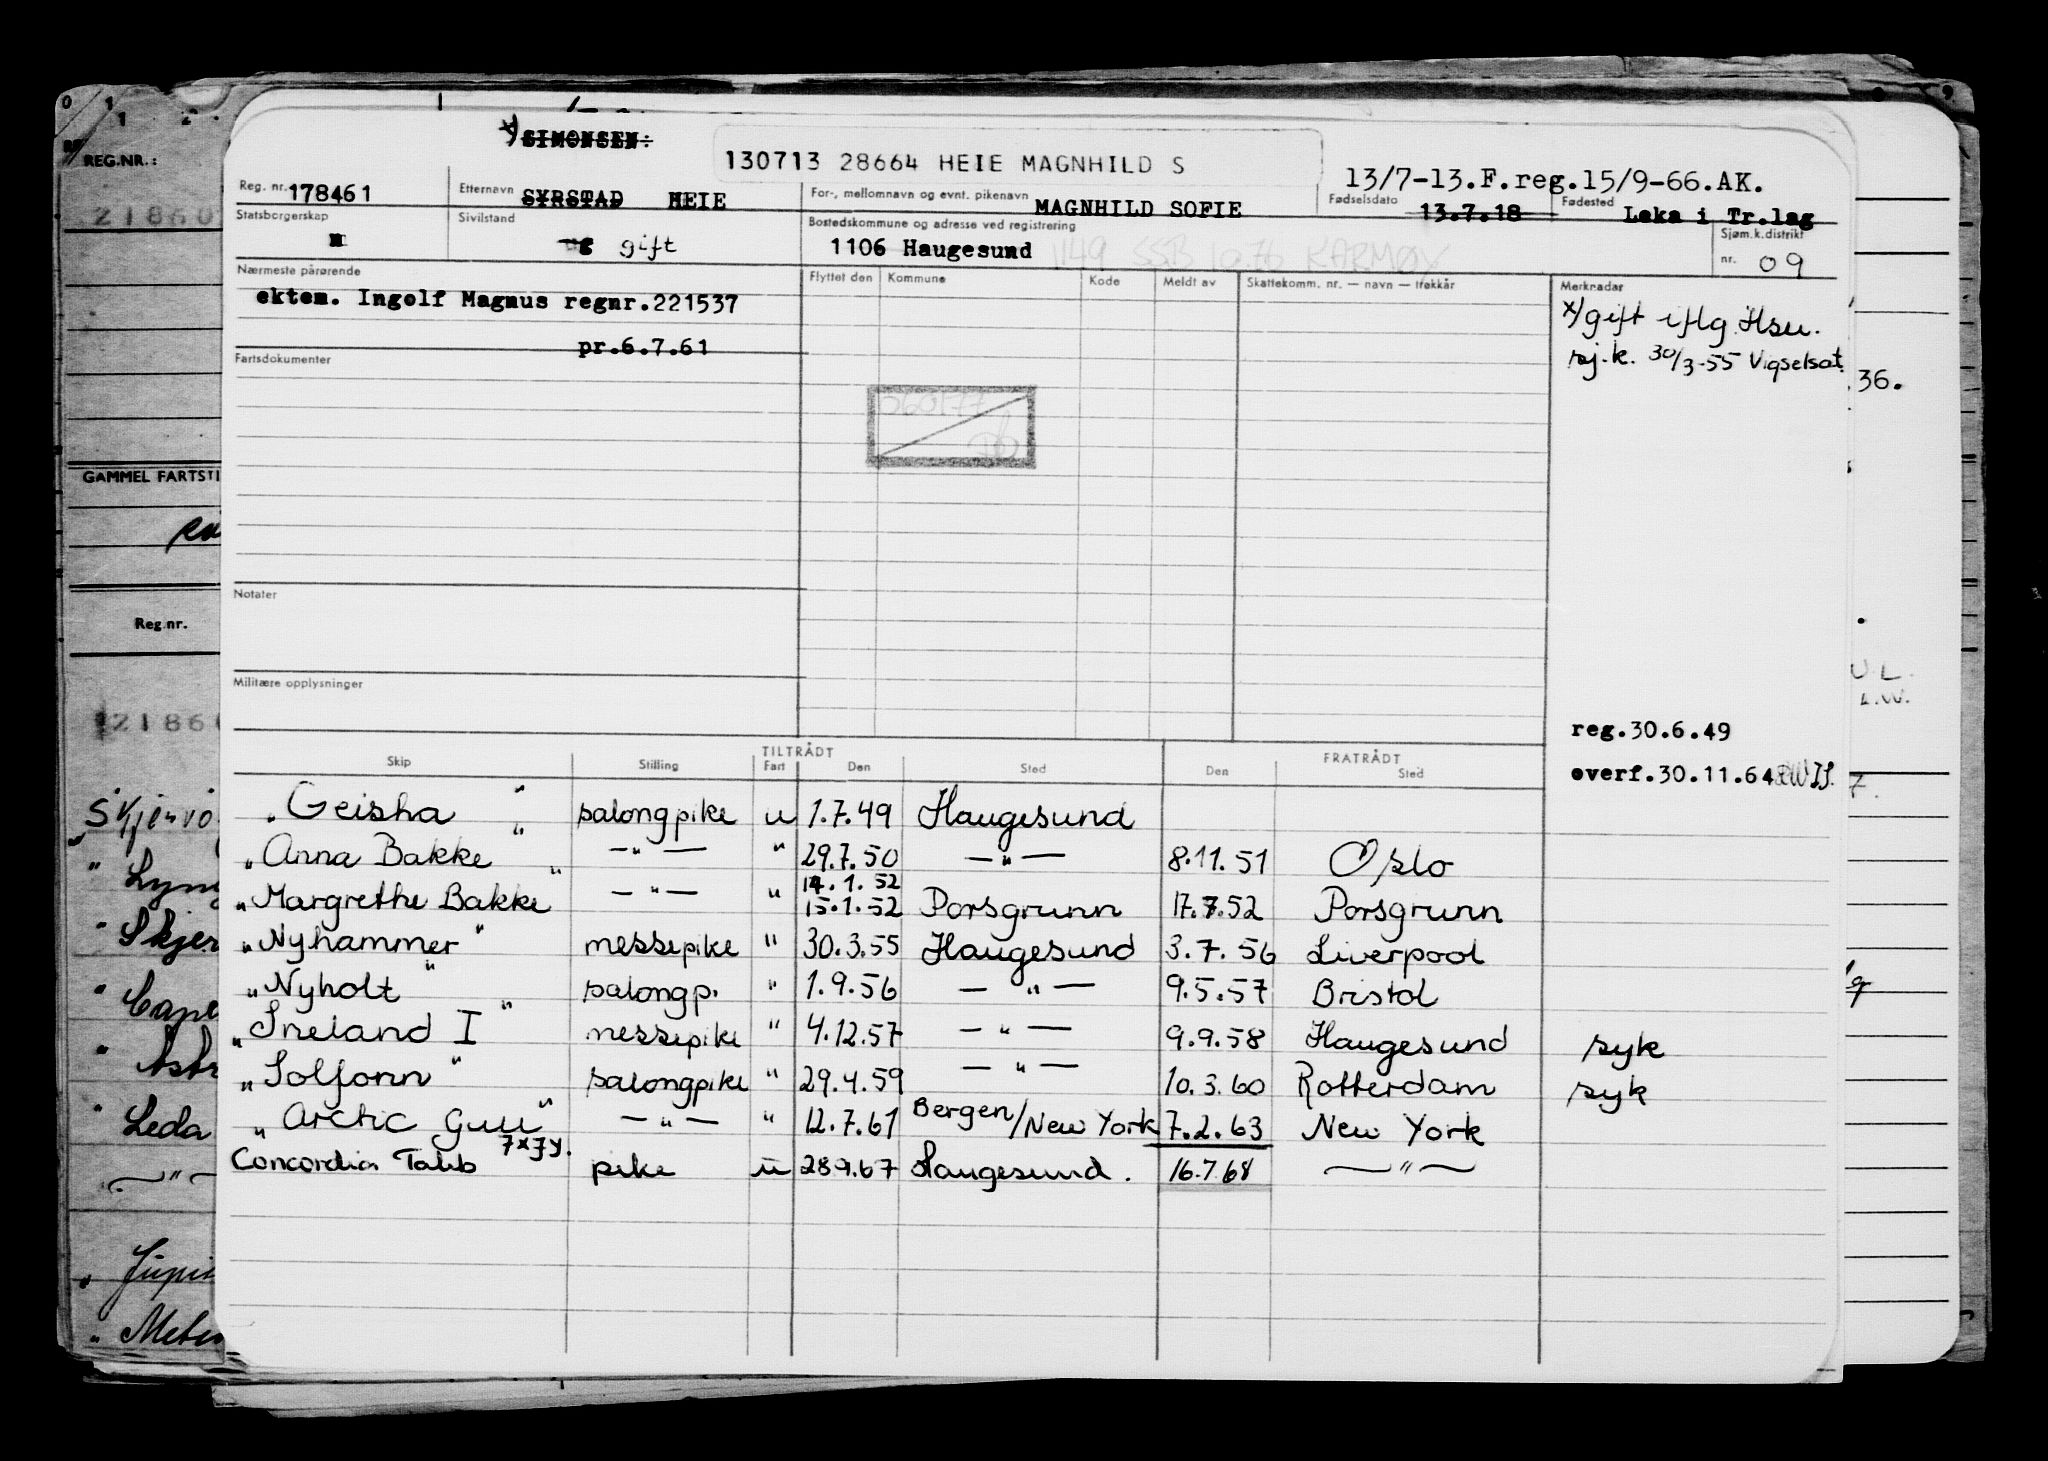 x) SIMONSEN÷
130713 28664 HEIE MAGNHILD S
13/7-13.F.reg.15/9-66.AK.
REG.NR.:
Reg. nr. 178461 Etternavn SYRSTAD HEIE For-, mellomnavn og evnt. pikenavn MAGNHILD SOFIE Fødselsdato 13.7.18 Fødested Leka i Tr.lag
Statsborgerskap n Sivilstand ug gift Bostedskommune og adresse ved registrering 1106 Haugesund 1149 SSB 10.76 KARMØY Sjøm.k.distrikt nr. 09
Nærmeste pårørende Flyttet den Kommune Kode Meldt av Skattekomm. nr. — navn — trekkår Merknader
ektem. Ingolf Magnus regnr.221537
x/gift iflg. Hsu.
pr.6.7.61
sj.k. 30/3-55 Vigselsat.
36.
Fartsdokumenter
GAMMEL FARTSTI
Notater
Reg.nr.
Militære opplysninger
reg.30.6.49
overf.30.11.64
TILTRÅDT FRATRÅDT
Skip Stilling Fart Den Sted Den Sted
"Geisha" salongpike u 1.7.49 Haugesund
"Anna Bakke" —"— " 29.7.50 —"— 8.11.51 Oslo
14.1.52
"Margrethe Bakke" —"— " 15.1.52 Porsgrunn 17.7.52 Porsgrunn
"Nyhammer" messepike " 30.3.55 Haugesund 3.7.56 Liverpool
"Nyholt" salongp. " 1.9.56 —"— 9.5.57 Bristol
"Sneland I" messepike " 4.12.57 —"— 9.9.58 Haugesund syk
"Solfonn" salongpike " 29.4.59 —"— 10.3.60 Rotterdam syk
"Arctic Gull" —"— " 12.7.61 Bergen/New York 7.2.63 New York
Concordia Tabb 7x7y. pike u 28.9.67 Haugesund. 16.7.68 —"—
Leda